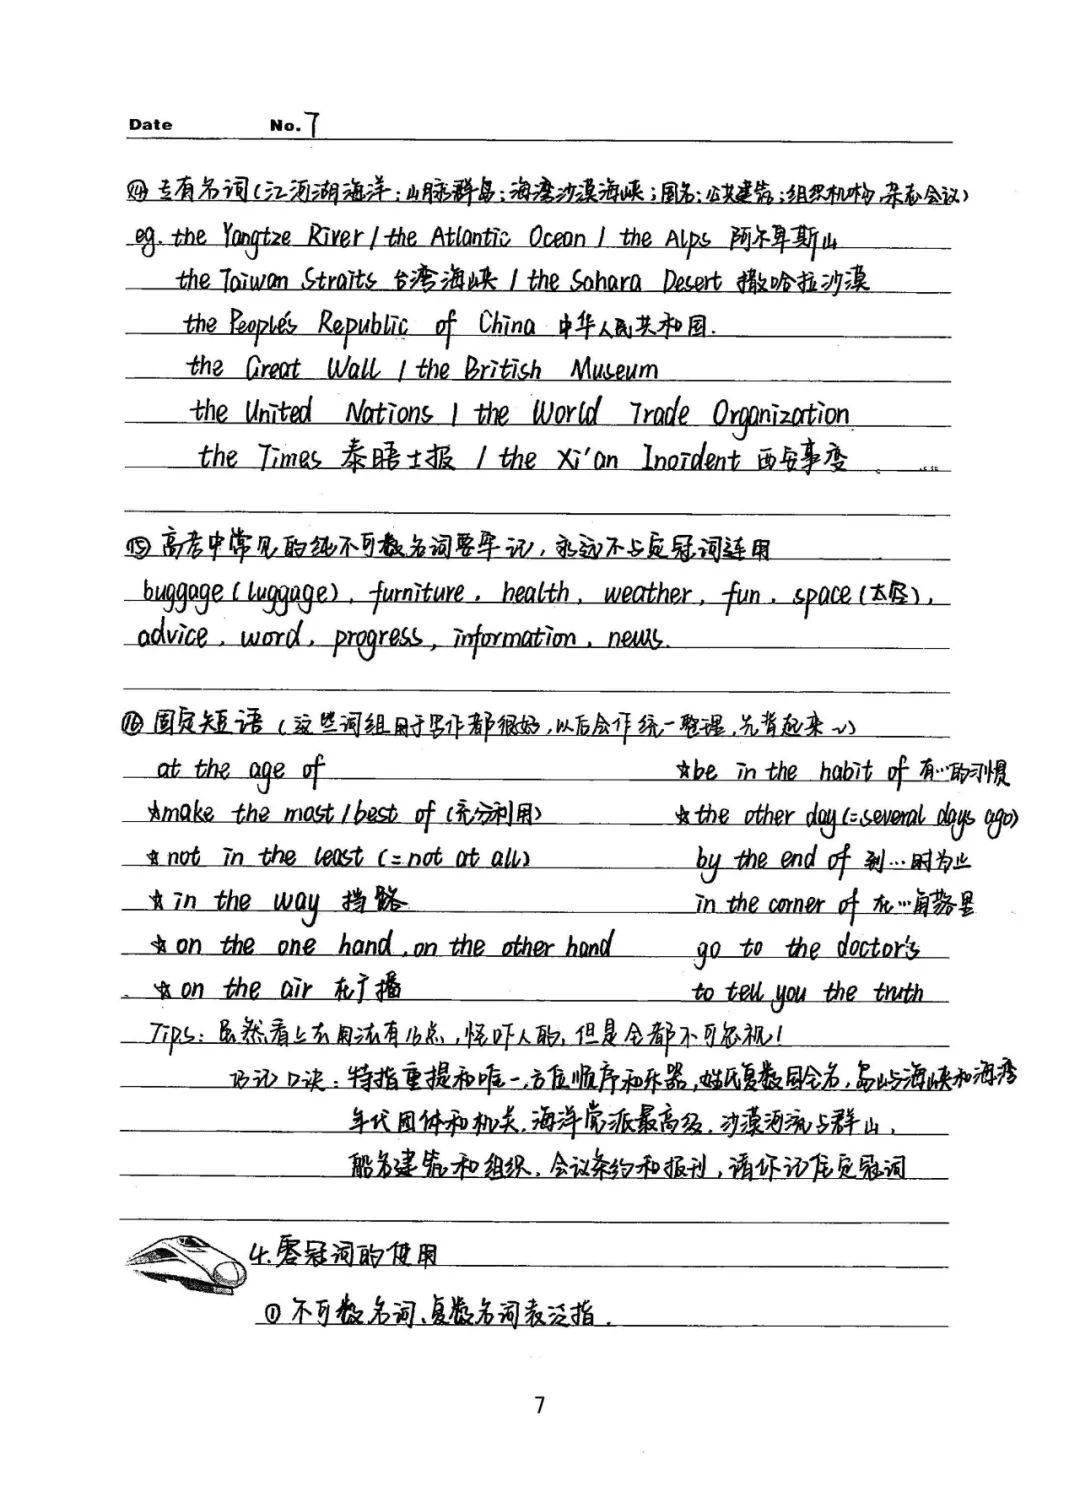 Date No. 7
⑭ 专有名词(江河湖海洋;山脉群岛;海湾沙漠海峡;国名;公共建筑;组织机构,杂志会议)
eg. the Yangtze River / the Atlantic Ocean / the Alps 阿尔卑斯山
the Taiwan Straits 台湾海峡 / the Sahara Desert 撒哈拉沙漠
the People's Republic of China 中华人民共和国.
the Great Wall / the British Museum
the United Nations / the World Trade Organization
the Times 泰晤士报 / the Xi'an Incident 西安事变
⑮ 高考中常见的纯不可数名词要牢记,永远不与定冠词连用
buggage (luggage), furniture, health, weather, fun, space (太空),
advice, word, progress, information, news.
⑯ 固定短语 (这些词组用于写作都很好,以后会作统一整理,先背起来~)
at the age of ☆be in the habit of 有…的习惯
☆make the most/best of (充分利用) ☆the other day (=several days ago)
☆not in the least (=not at all) by the end of 到…时为止
☆in the way 挡路 in the corner of 在…角落里
☆on the one hand, on the other hand go to the doctor's
☆on the air 在广播 to tell you the truth
Tips: 虽然看上去用法有16点,怪吓人的,但是全都不可忽视!
巧记口诀: 特指重提和唯一,方位顺序和乐器,姓氏复数国全名,岛屿海峡和海湾
年代团体和机关,海洋党派最高级,沙漠河流与群山,
船名建筑和组织,会议条约和报刊,请你记住定冠词
4.零冠词的使用
① 不可数名词、复数名词表泛指.
7